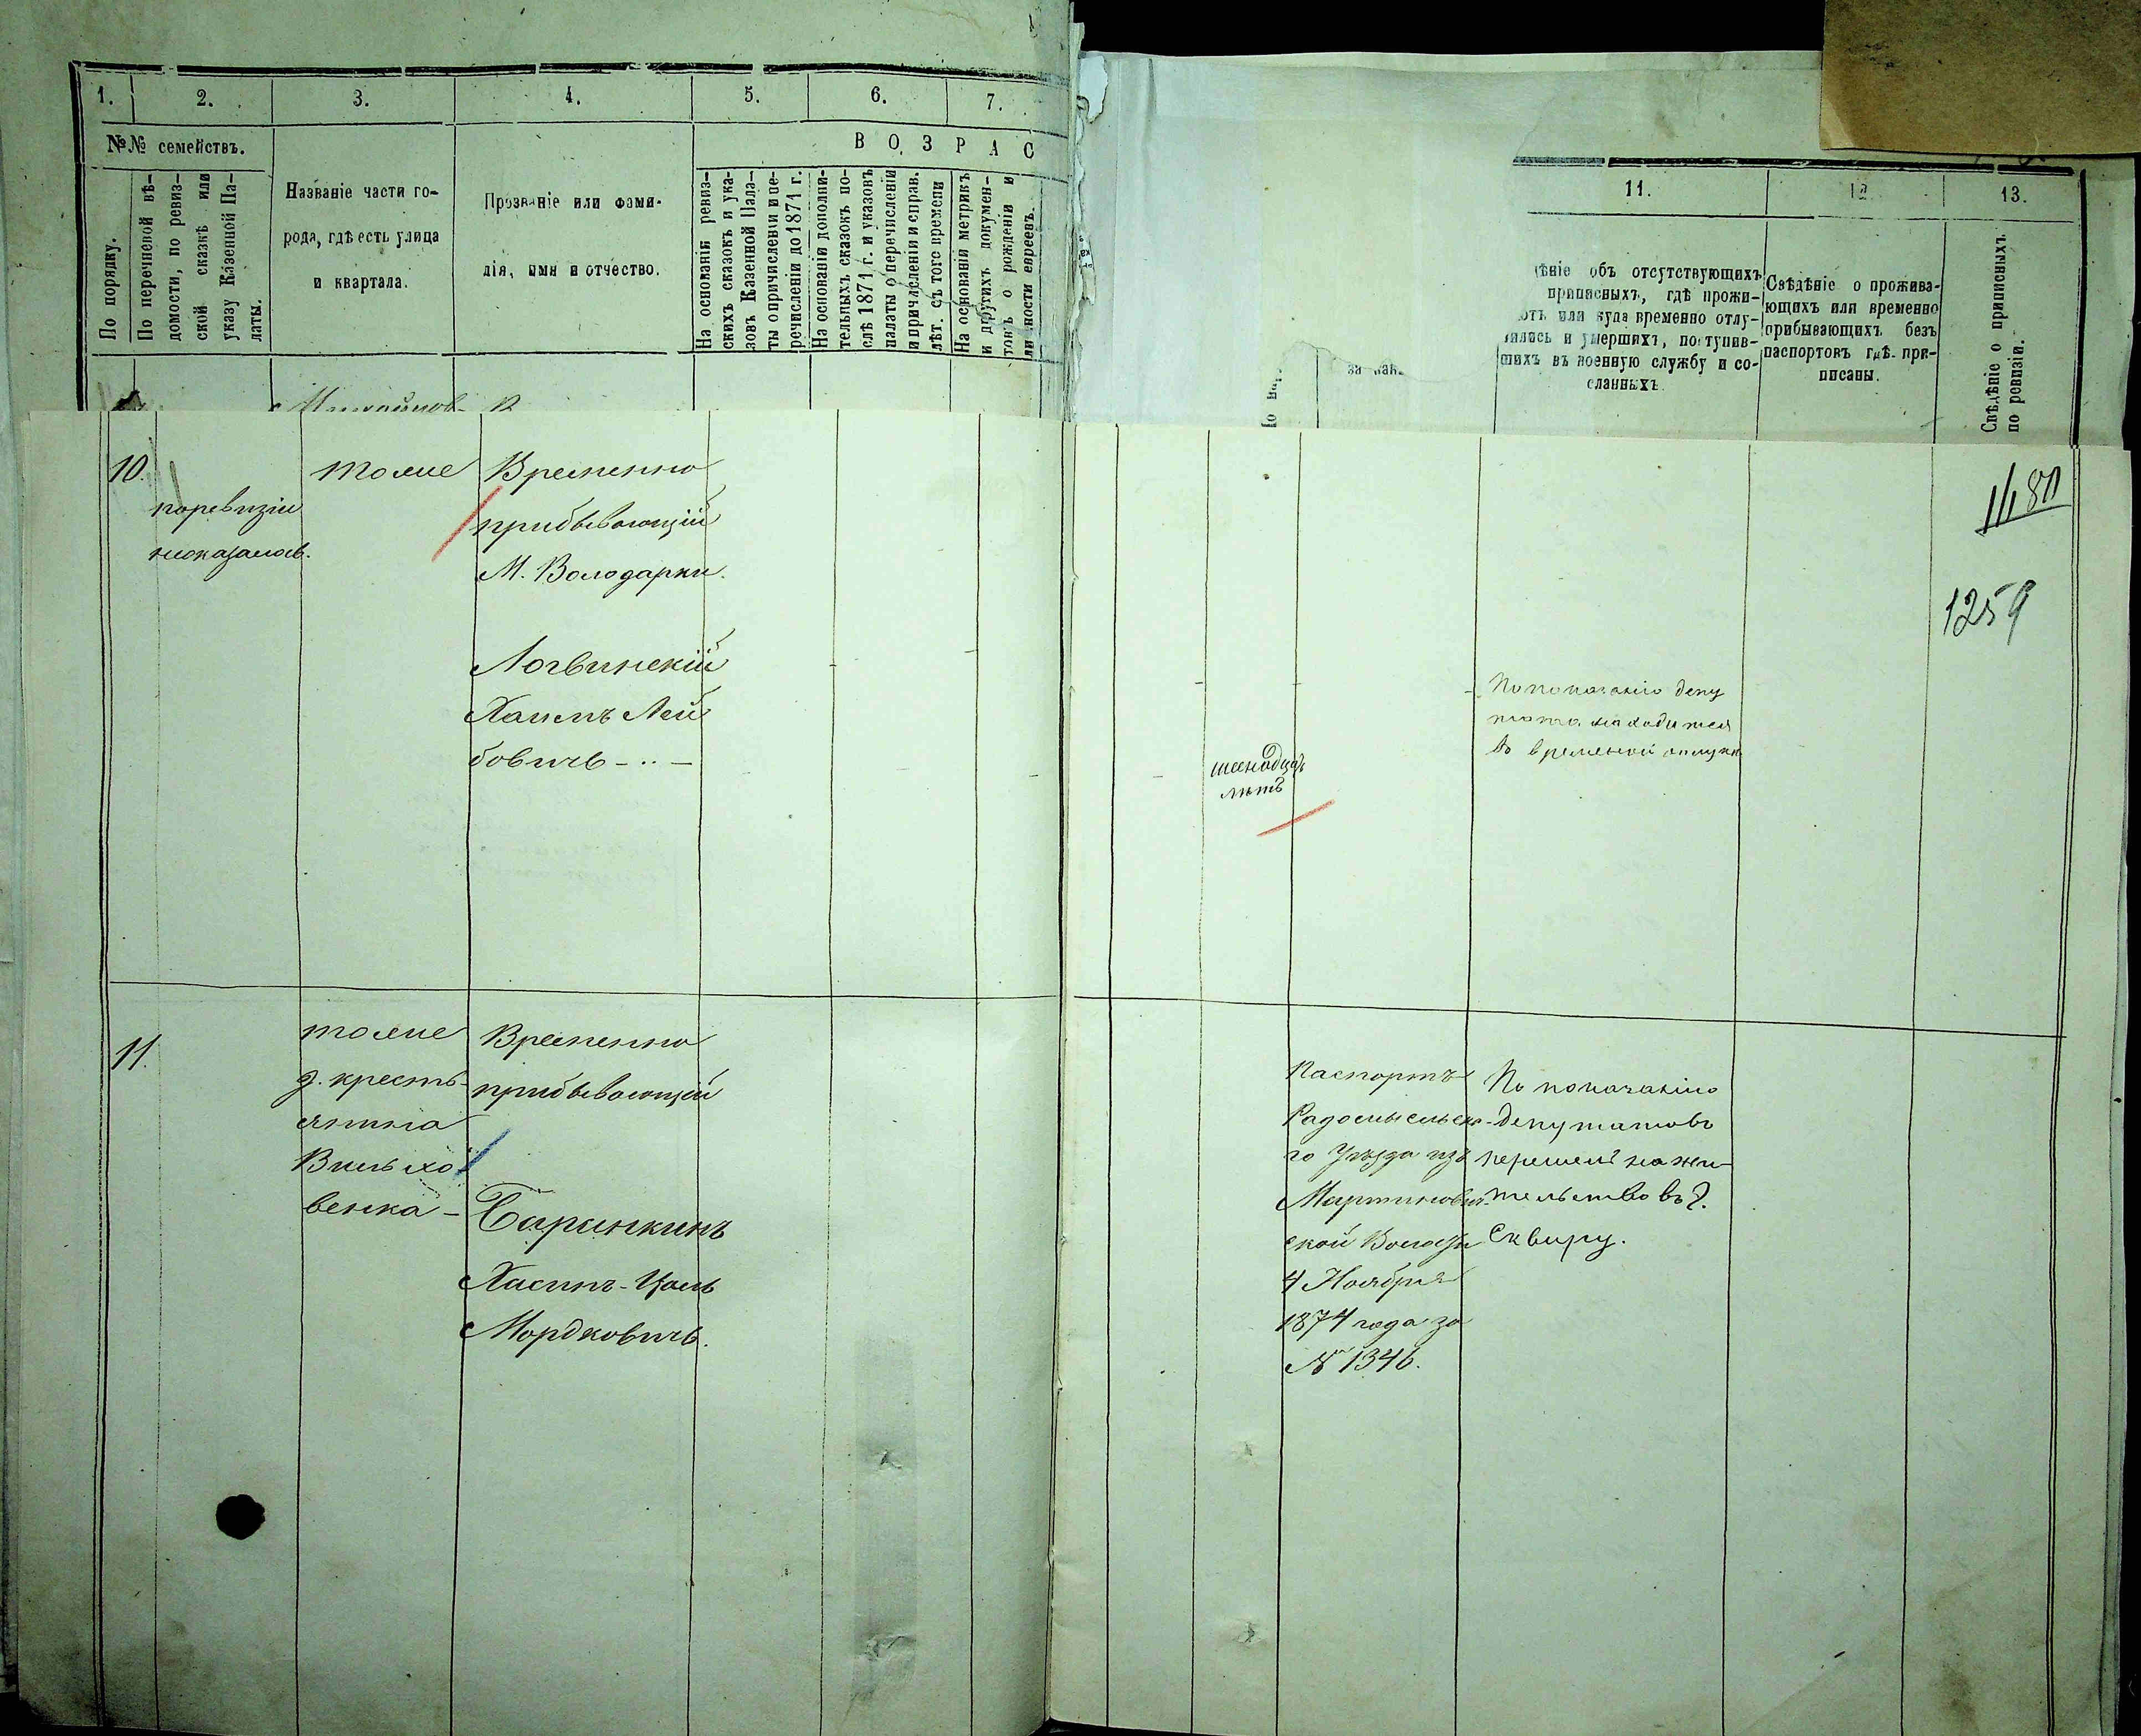 1.
2.
3.
4.
5.
6.
7.
№№ семействъ.
ВОЗРАС
По порядку.
По перечневой вѣ-
домости, по ревиз-
ской сказкѣ или
указу Казенной Па-
латы.
Названіе части го-
рода, гдѣ есть улица
и квартала.
Прозваніе или фами-
лія, имя и отчество.
На основаніи ревиз-
скихъ сказокъ и ука-
зовъ Казенной Пала-
ты о причисленіи и пе-
речисленіи до 1871 г.
На основаніи дополни-
тельныхъ сказокъ по-
слѣ 1871 г. и указовъ
палаты о перечисленіи
и причисленіи и справ.
лѣт. съ того времени
На основаніи метрикъ
и другихъ докумен-
товъ о рожденіи и
личности евреевъ.
11.
12.
13.
объ отсутствующихъ
приписныхъ, гдѣ прожи-
или куда временно отлу-
и умершихъ, поступив-
шихъ въ военную службу и со-
сланныхъ.
Свѣдѣніе о прожива-
ющихъ или временно
прибывающихъ безъ
паспортовъ гдѣ при-
писаны.
Свѣдѣніе о приписныхъ
по ревизіи.
за
10.
поревизіи
непоказанъ.
тоже
Временно
прибывающій
М. Володарки.
Логвинскій
Хаимъ Лей
бовичъ
лѣтъ
По показанію депу
тата находится
во временой отлучк
1259
11.
тоже
д. кресть-
янина
Вильхо
венка -
Временно
прибывающій
Баринкинъ
Хаимъ-Цаль
Мордковичъ.
Паспортъ
Радомысльска-
го Уѣзда изъ
Мартинович-
ской Волости
4 Ноября
1874 года за
№ 1346.
По показанію
депутатовъ
перешелъ на жи-
тельство въ г.
Сквиру.